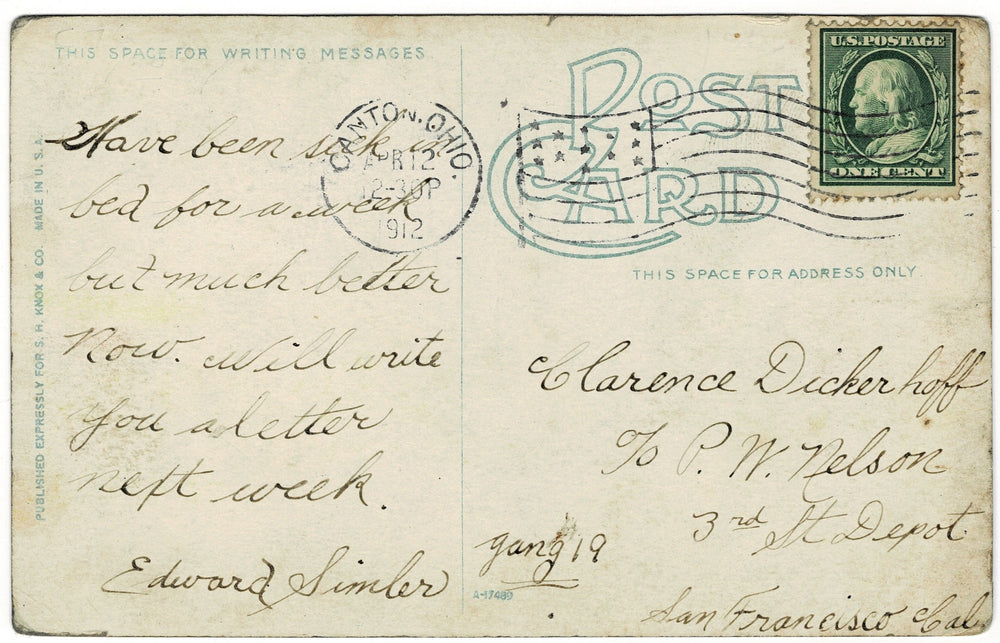 THIS SPACE FOR WRITING MESSAGES
Have been sick in
bed for a week
but much better
Now. Will write
you a letter
next week.
Edward Simler
PUBLISHED EXPRESSLY FOR S. H. KNOX & CO. MADE IN U. S. A.
CANTON, OHIO.
APR 12
12-30P
1912
POST CARD
U.S. POSTAGE
ONE CENT
THIS SPACE FOR ADDRESS ONLY.
Clarence Dickerhoff
To P. W. Nelson
3rd St Depot
gang 19
San Francisco Cal
A-17489